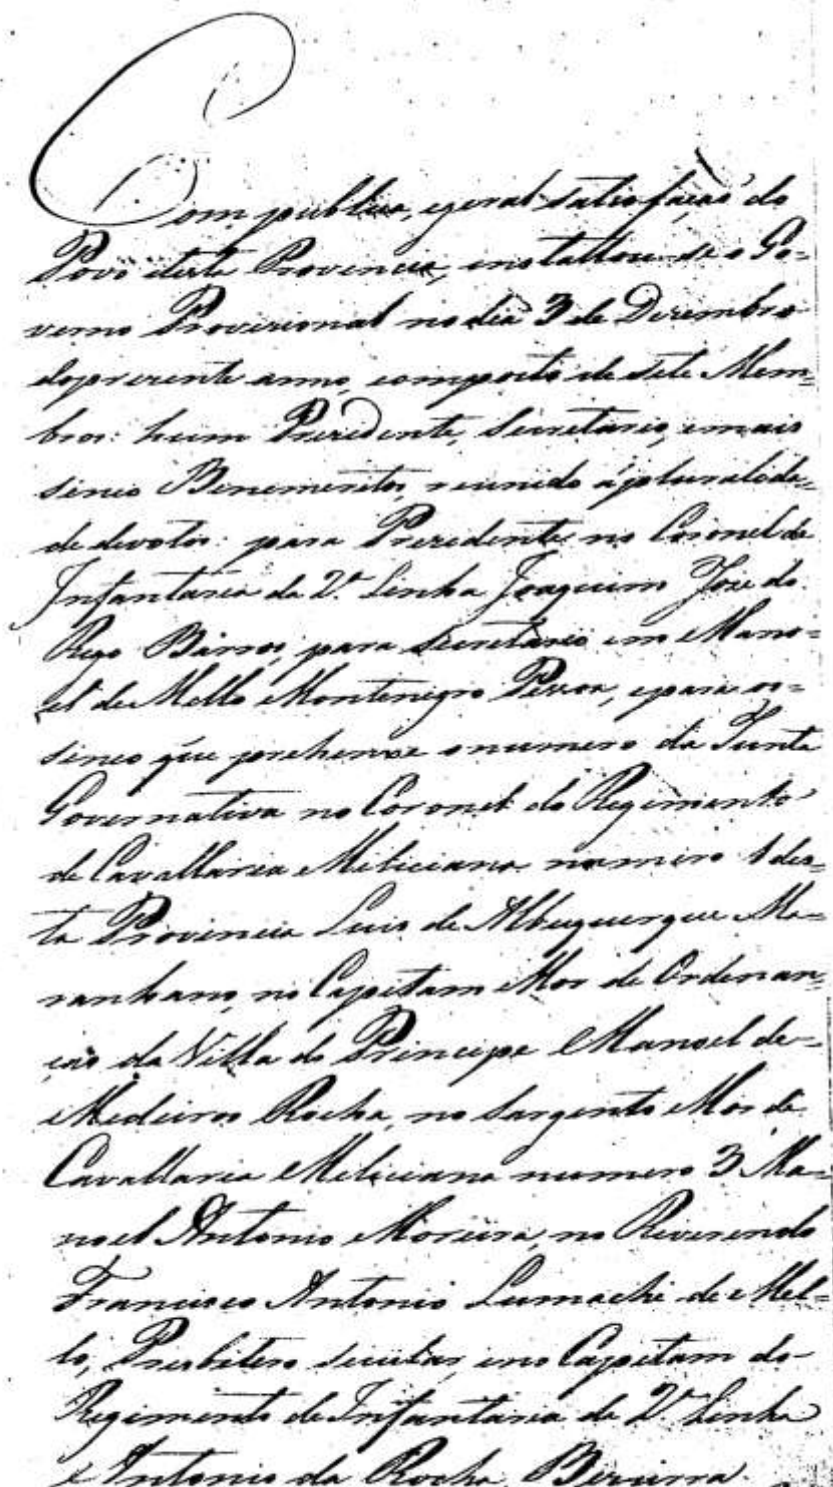 Com publica, e geral satisfação do
Povo desta Provincia, installou-se o Go=
verno Provizional no dia 3 de Dezembro
do prezente anno, composto de sete Mem=
bros: hum Prezidente, Secretario, e mais
sinco Benemeritos, reunido á pluralida=
de de votos: para Prezidente no Coronel de
Infantaria da 2.ª Linha Joaquim Joze do
Rego Barros, para Secretario em Mano=
el de Mello Montenegro Pessoa, e para os=
sinco que prehenxe o numero da Junta
Governativa no Coronel do Regimento
de Cavallaria Miliciana numero 1 des=
ta Provincia Luis de Albuquerque Ma=
ranhano, no Capitam Mor de Ordenan=
ças da Villa do Principe Manoel de=
Medeiros Rocha, no Sargento Mor de
Cavallaria Miliciana numero 3 Ma=
noel Antonio Moreira, no Reverendo
Francisco Antonio Lumachi de Mel=
lo, Presbitero secular, e no Capitam do=
Regimento de Infantaria da 2.ª Linha
Antonio da Rocha Bezerra.